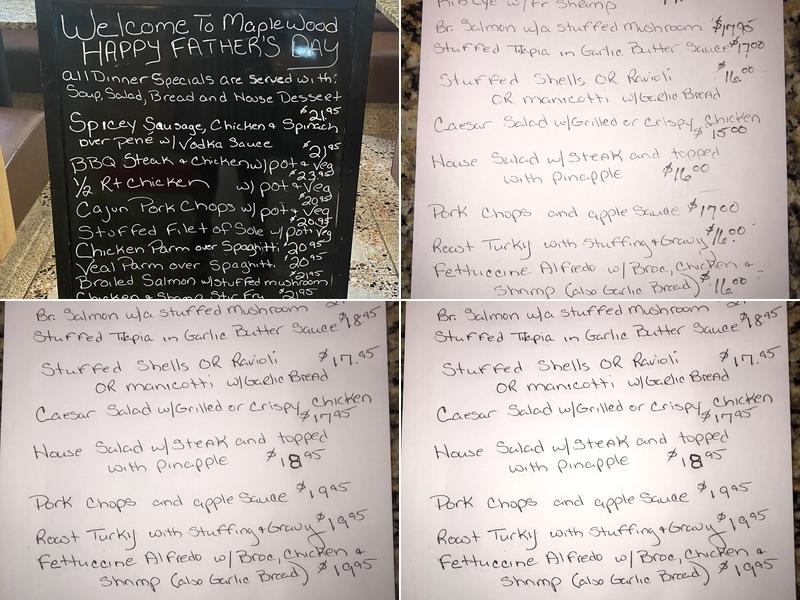 Welcome To Maplewood
HAPPY FATHER'S DAY
all Dinner Specials are served with:
Soup, Salad, Bread and House Dessert
$21.95
Spicey Sausage, Chicken & Spinach
over pene w/ Vodka Sauce
$21.95
BBQ Steak & Chicken w/ pot & veg
$23.95
1/2 Rt Chicken w/ pot & veg
$20.95
Cajun Pork Chops w/ pot & veg
$20.95
Stuffed Filet of Sole w/ pot & veg
Chicken Parm over Spaghitti $20.95
Veal Parm over Spaghitti $20.95
$21.95
Broiled Salmon w/ stuffed mushroom
Chicken & Shrimp Stir Fry $21.95
Rib Eye w/ Fr Shrimp
Br. Salmon w/a stuffed mushroom $17.95
Stuffed Tilapia in Garlic Butter Sauce $17.00
Stuffed Shells OR Ravioli $16.00
OR manicotti w/Garlic Bread
Caesar Salad w/Grilled or Crispy Chicken
$15.00
House Salad w/STEAK and topped
with pinapple $16.00
Pork Chops and apple Sauce $17.00
Roast Turky with Stuffing & Gravy $16.00
Fettuccine Alfredo w/ Broc, Chicken &
Shrimp (also Garlic Bread) $16.00
Br. Salmon w/a stuffed Mushroom
Stuffed Tilapia in Garlic Butter Sauce $18.95
Stuffed Shells OR Ravioli $17.95
OR manicotti w/Garlic Bread
Caesar Salad w/Grilled or Crispy Chicken
$17.95
House Salad w/STEAK and topped
with pinapple $18.95
Pork Chops and apple Sauce $19.95
Roast Turky with Stuffing & Gravy $19.95
Fettuccine Alfredo w/ Broc, Chicken &
Shrimp (also Garlic Bread) $19.95
Br. Salmon w/a stuffed Mushroom
Stuffed Tilapia in Garlic Butter Sauce $18.95
Stuffed Shells OR Ravioli $17.95
OR manicotti w/Garlic Bread
Caesar Salad w/Grilled or Crispy Chicken
$17.95
House Salad w/STEAK and topped
with pinapple $18.95
Pork Chops and apple Sauce $19.95
Roast Turky with Stuffing & Gravy $19.95
Fettuccine Alfredo w/ Broc, Chicken &
Shrimp (also Garlic Bread) $19.95